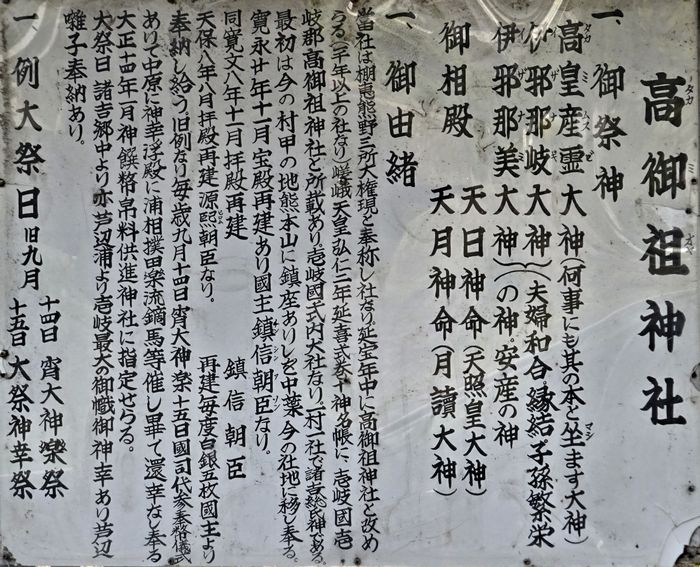 高御祖神社
タカミオヤ
一、御祭神
高皇産霊大神(何事にも其の本と坐ます大神)
伊邪那岐大神
伊邪那美大神
夫婦和合。縁結子孫繁栄
の神。安産の神
御相殿
天日神命(天照皇大神)
天月神命(月讀大神)
一、御由緒
当社は棚夷熊野三所大権現と奉称し社なり延宝年中に高御祖神社と改め
らる(二千年以上の社なり)嵯峨天皇弘仁二年延喜式巻十神名帳に、壱岐國壱
岐郡高御祖神社と所載あり壱岐國式内大社なり(一村一社で諸吉総氏神である。
最初は今の村甲の地熊本山に鎮座ありしを中葉、今の社地に移し奉る。
寛永廿年十一月宝殿再建あり國主鎮信朝臣なり。
同寛文八年十一月拝殿再建 鎮信朝臣
天保八年八月拝殿再建源熈朝臣なり。 再建毎度白銀五枚國主より
奉納し給う旧例なり毎歳九月十四日宵大神楽十五日國司代参奉幣儀式
ありて中原に神幸浮殿に浦相撲田楽流鏑馬等催し畢て還幸なし奉る
大正十四年一月神饌幣帛料供進神社に指定せらる。
大祭日諸吉郷中より亦芦辺浦より壱岐最大の御幟御神幸あり芦辺
囃子奉納あり。
一、例大祭日旧九月
十四日 宵大神樂祭
十五日 大祭神幸祭